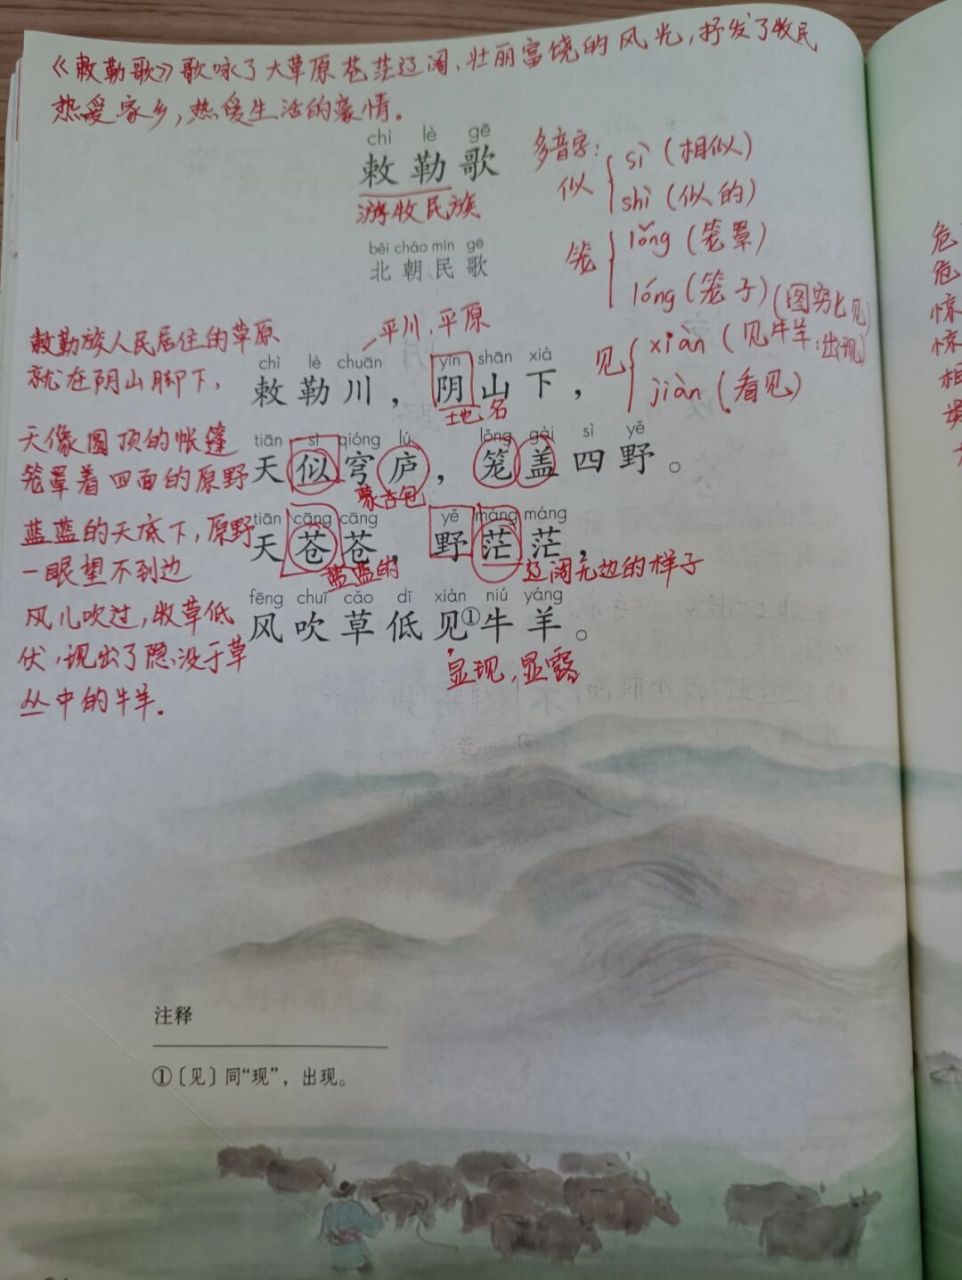 《敕勒歌》歌咏了大草原苍茫辽阔、壮丽富饶的风光,抒发了牧民
热爱家乡,热爱生活的豪情。
chì lè gē
敕勒歌
游牧民族
běi cháo mín gē
北朝民歌
多音字:
似 sì (相似)
shì (似的)
笼 lǒng (笼罩)
lóng (笼子)
(图穷匕见)
见 xiàn (见牛羊:出现)
jiàn (看见)
敕勒族人民居住的草原
就在阴山脚下,
平川、平原
chì lè chuān yīn shān xià
敕勒川,阴山下,
地名
天像圆顶的帐篷
笼罩着四面的原野
tiān sì qióng lú lǒng gài sì yě
天似穹庐,笼盖四野。
蒙古包
蓝蓝的天底下,原野
一眼望不到边
tiān cāng cāng yě máng máng
天苍苍,野茫茫,
蓝蓝的
辽阔无边的样子
风儿吹过,牧草低
伏,现出了隐没于草
丛中的牛羊.
fēng chuī cǎo dī xiàn niú yáng
风吹草低见①牛羊。
显现,显露
注释
①〔见〕同“现”,出现。
危
危
惊
惊
相